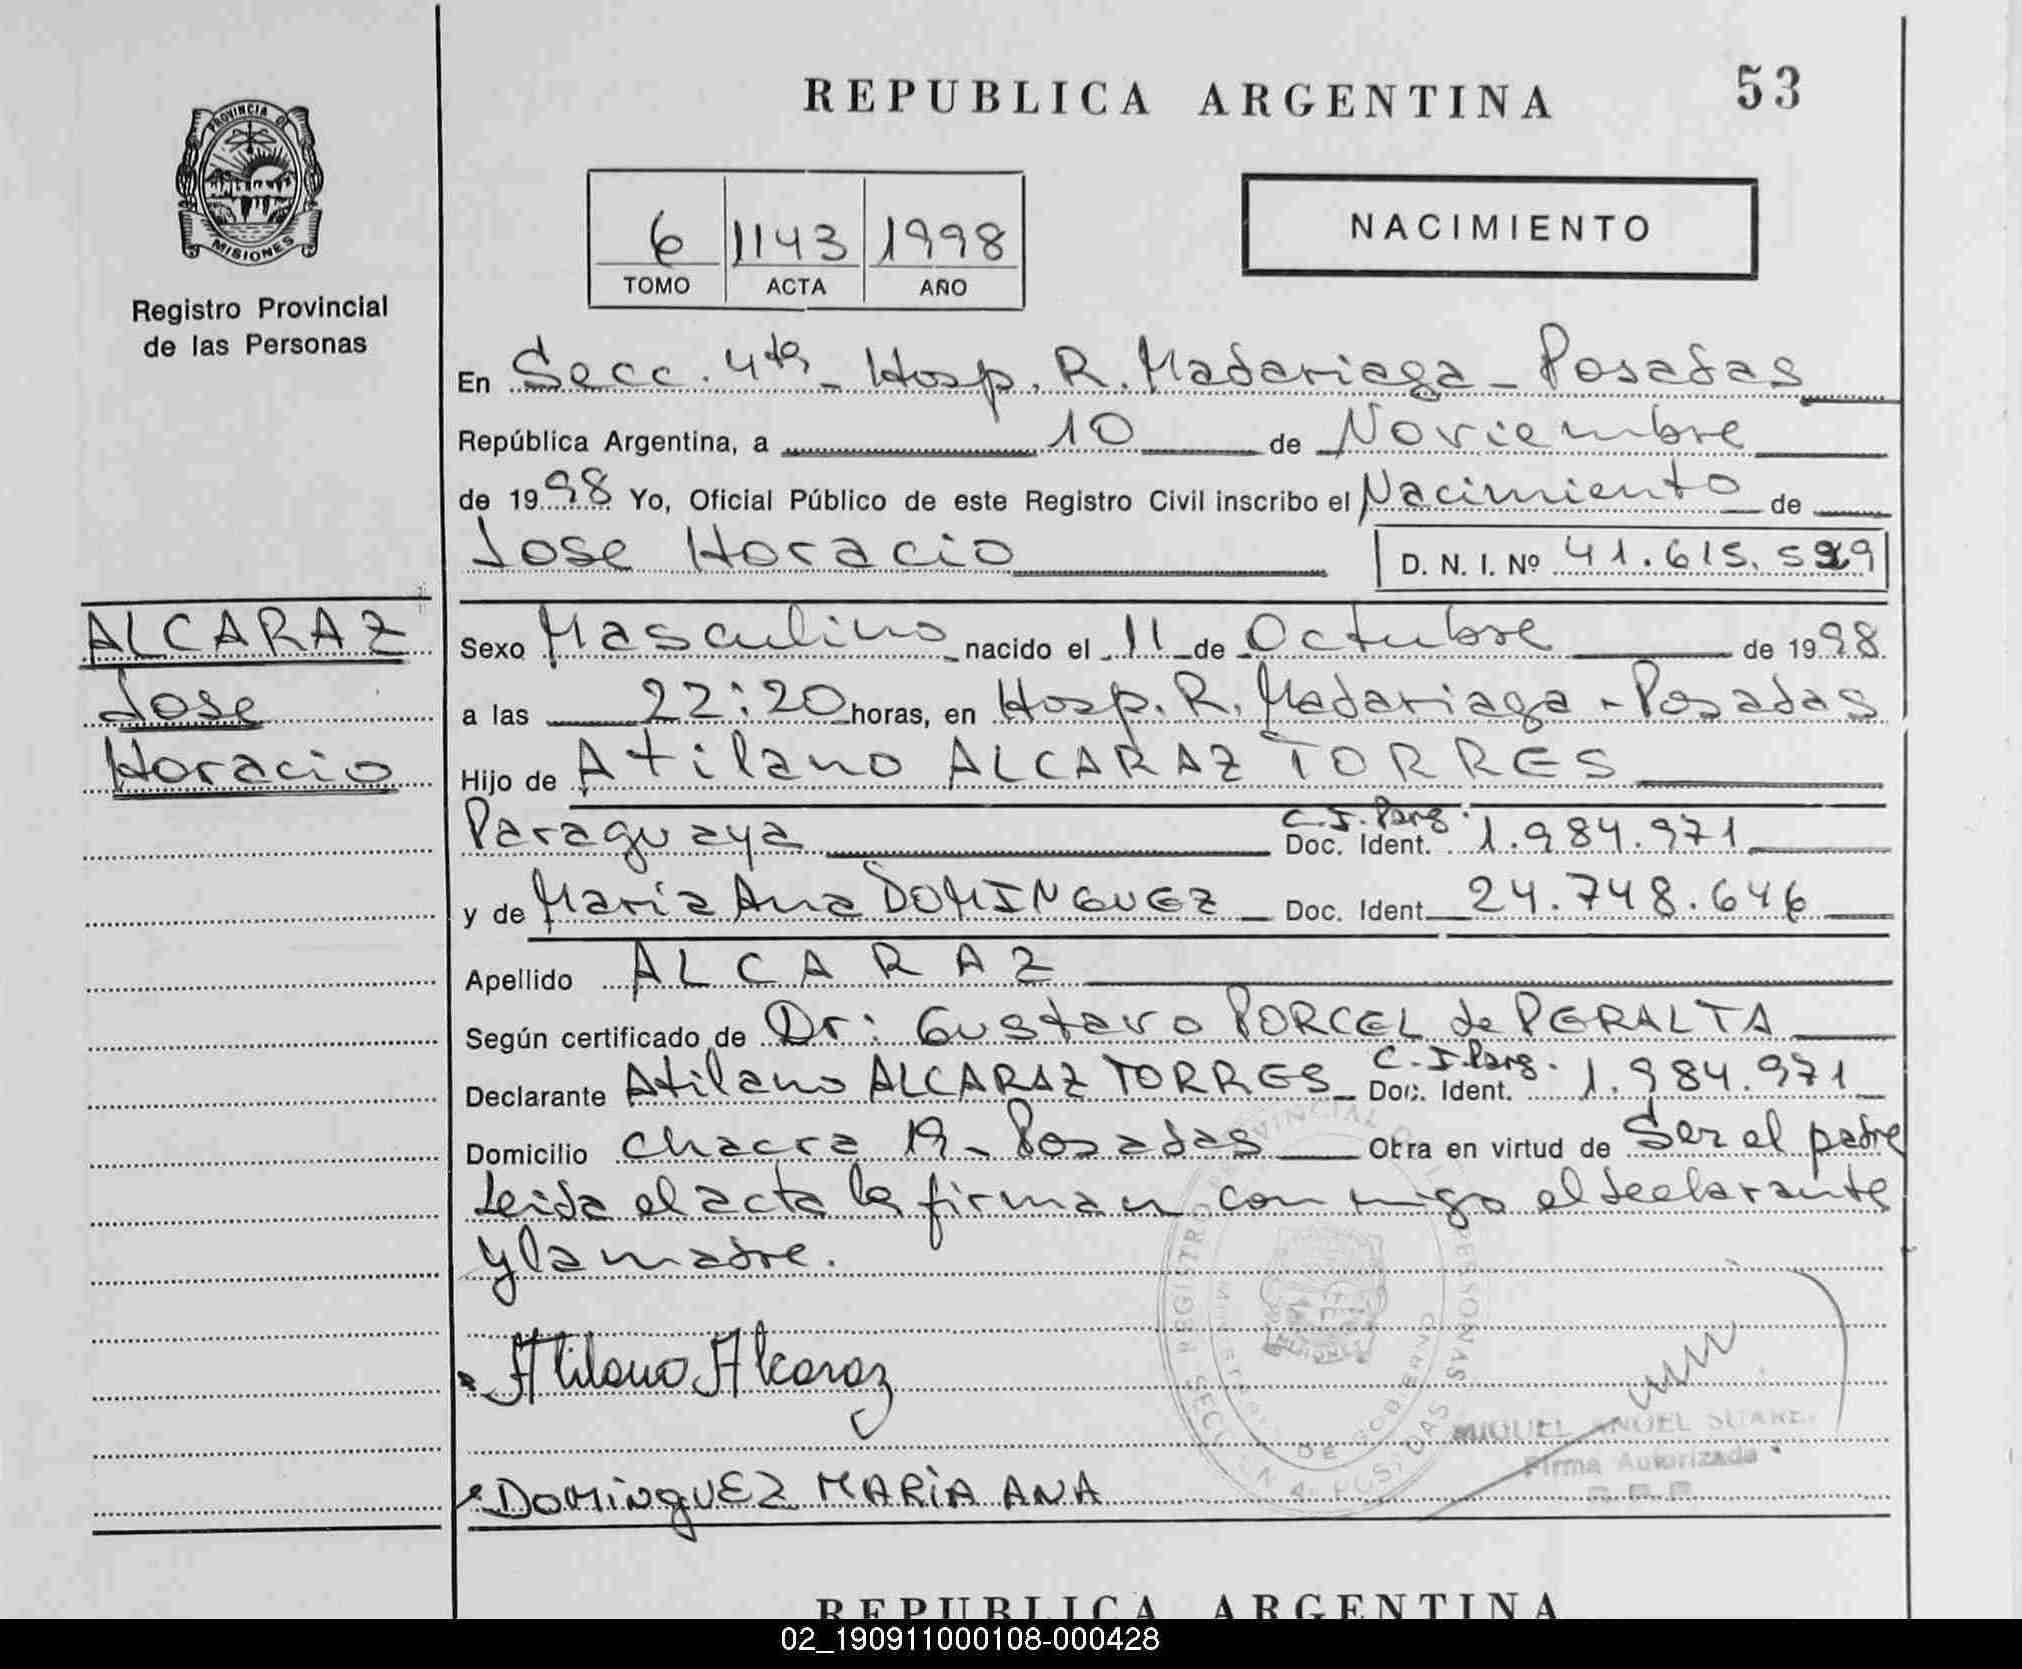 REPUBLICA ARGENTINA
53
PROVINCIA DE
MISIONES
Registro Provincial
de las Personas
6 1143 1998
TOMO ACTA AÑO
NACIMIENTO
En Secc. 4ta - Hosp. R. Madariaga - Posadas
República Argentina, a 10 de Noviembre
de 1998 Yo, Oficial Público de este Registro Civil inscribo el Nacimiento de
Jose Horacio D. N. I. Nº 41.615.
ALCARAZ
Jose
Horacio
Sexo Masculino nacido el 11 de Octubre de 1998
a las 22:20 horas, en Hosp. R. Madariaga - Posadas
Hijo de Atilano ALCARAZ TORRES
Paraguaya C.I. Parg. Doc. Ident. 1.984.971
y de Maria Ana DOMINGUEZ Doc. Ident. 24.748.646
Apellido ALCARAZ
Según certificado de Dr: Gustavo PORCEL de PERALTA
Declarante Atilano ALCARAZ TORRES C.I. Parg. Doc. Ident. 1.984.971
Domicilio Chacra 19 - Posadas Obra en virtud de Ser el padre
Leida el acta la firman con migo el declarante
y la madre.
Atilano Alcaraz
DOMINGUEZ MARIA ANA
MIGUEL ANGEL SUAREZ
Firma Autorizada
REPUBLICA ARGENTINA
02_190911000108-000428